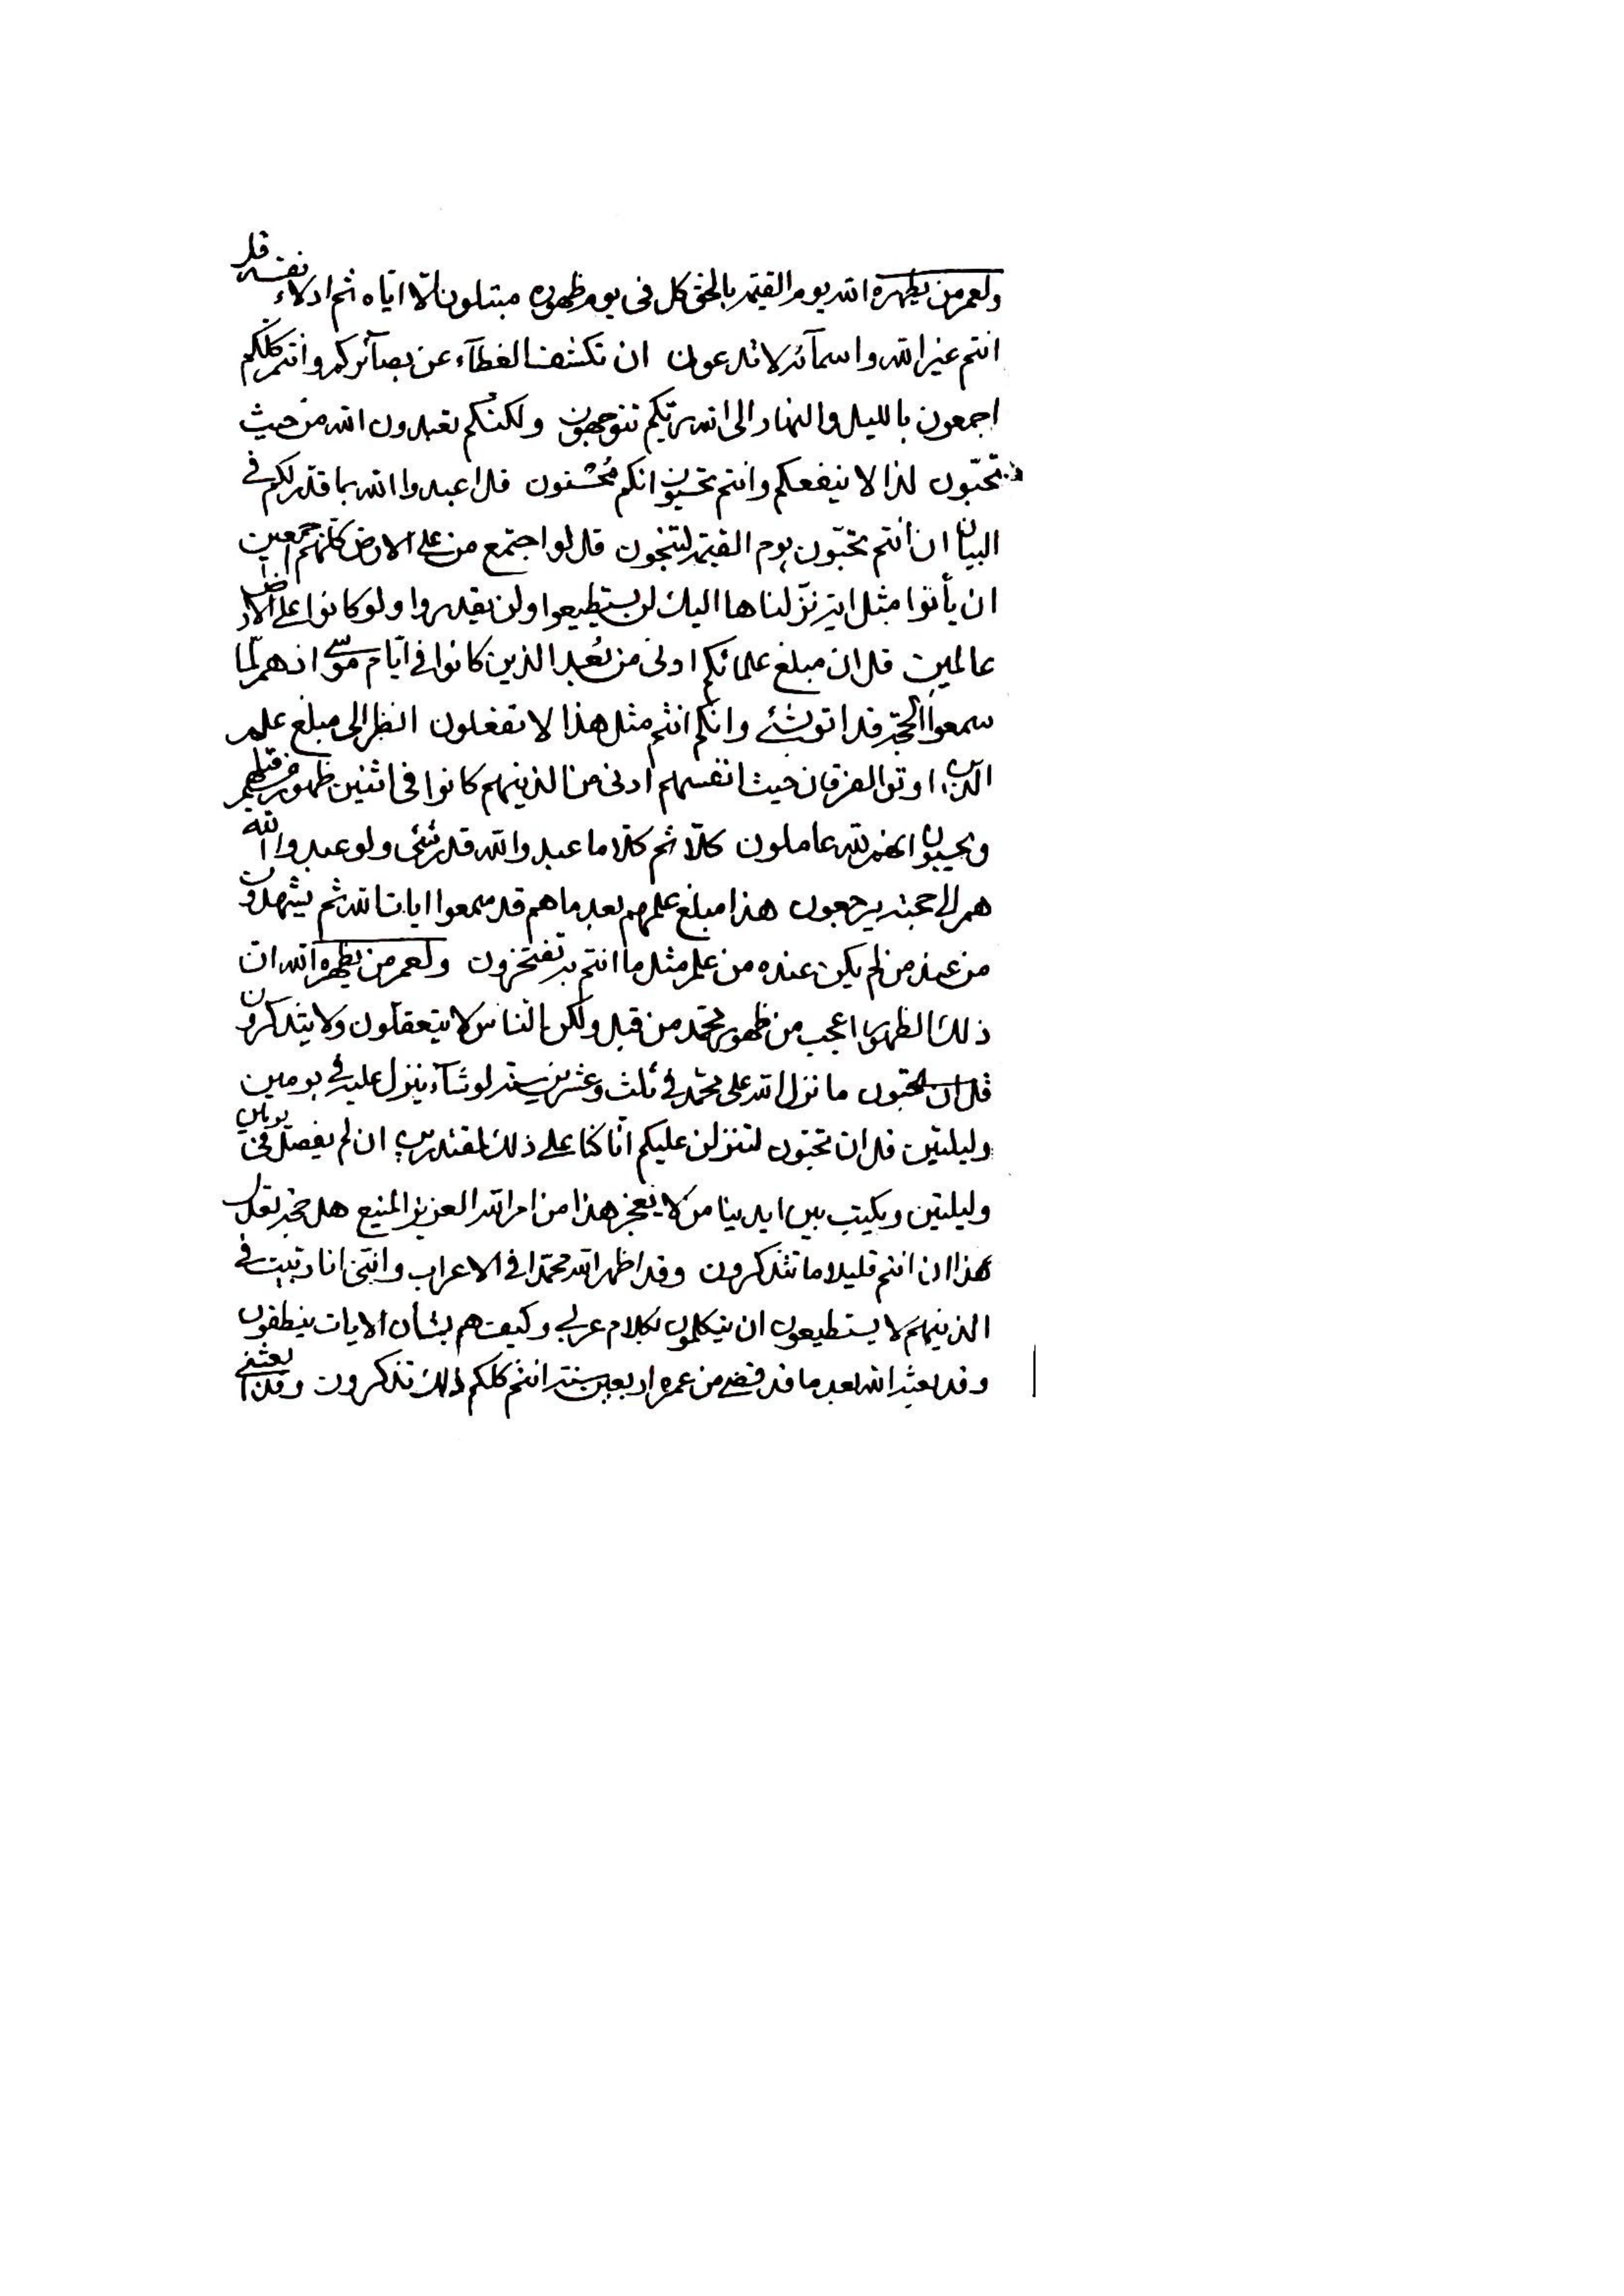 ولعمر من يظهره الله يوم القيمة بالحق كل في يوم ظهوره مبتلون الا اياه ثم ادلاء نفسه قل
انتم غير الله واسمآئه لا تدعون ان تكشف الغطآء عن بصآئركم وانتم كلكم
اجمعون بالليل والنهار الى الله ربكم تتوجهون ولكنكم تعبدون الله من حيث
تحبّون لذا لا ينفعكم وانتم تحسبون انكم مُحْسنون قل اعبدوا الله بما قدّر لكم في
البيان ان انتم تحبّون يوم القيمة لتنجون قل لو اجتمع من على الارض كلّهم اجمعين
ان يأتوا بمثل اية نزّلناها اليك لن يستطيعوا ولن يقدروا ولو كانوا على الارض
عالمين قل ان مبلغ علمائكم ادنى من عُبد الذين كانوا في ايّام موسى اذ هم لمّا
سمعوا الحجة قد اتوا بشئ وانكم انتم مثل هذا لا تفعلون انظر الى مبلغ علم
الذين اوتوا الفرقان حيث انفسهم ادنى من الذينهم كانوا في اثنين ظهور من قبلهم
ويحسبون انهم لله عاملون كلّا ثم كلّا ما عبدوا الله قدر شئ ولو عبدوا الله
هم الى حجته يرجعون هذا مبلغ علمهم بعد ما هم قد سمعوا ايات الله ثم يشهدون
من عند من لم يكن عنده من علم مثل ما انتم به تفتخرون ولعمر من يظهره الله ان
ذلك الظهور اعجب من ظهور محمّد من قبل ولكن الناس لا يتعقلون ولا يتذكرون
قل ان تحبون ما نزل الله على محمّد في ثلث وعشرين سنة لو شآء ينزل عليه في يومين
وليلتين قل ان تحبّون لننزلن عليكم انّا كنا على ذلك لمقتدرين ان لم يفصل في يومين
وليلتين ويكتب بين ايدينا من لا يعجز هذا من امر الله العزيز المنيع هل حجة تعدل
هذا ان انتم قليلا ما تتذكرون وقد اظهر الله محمّدا في الاعراب وانّني انا ربّيت في
الذينهم لا يستطيعون ان يتكلمون بكلام عربي وكيف هم بشأن الايات ينطقون
وقد بعثه الله بعد ما قد قضى من عمره اربعين سنة انتم كلكم بذلك تذكرون وقد ابعثني